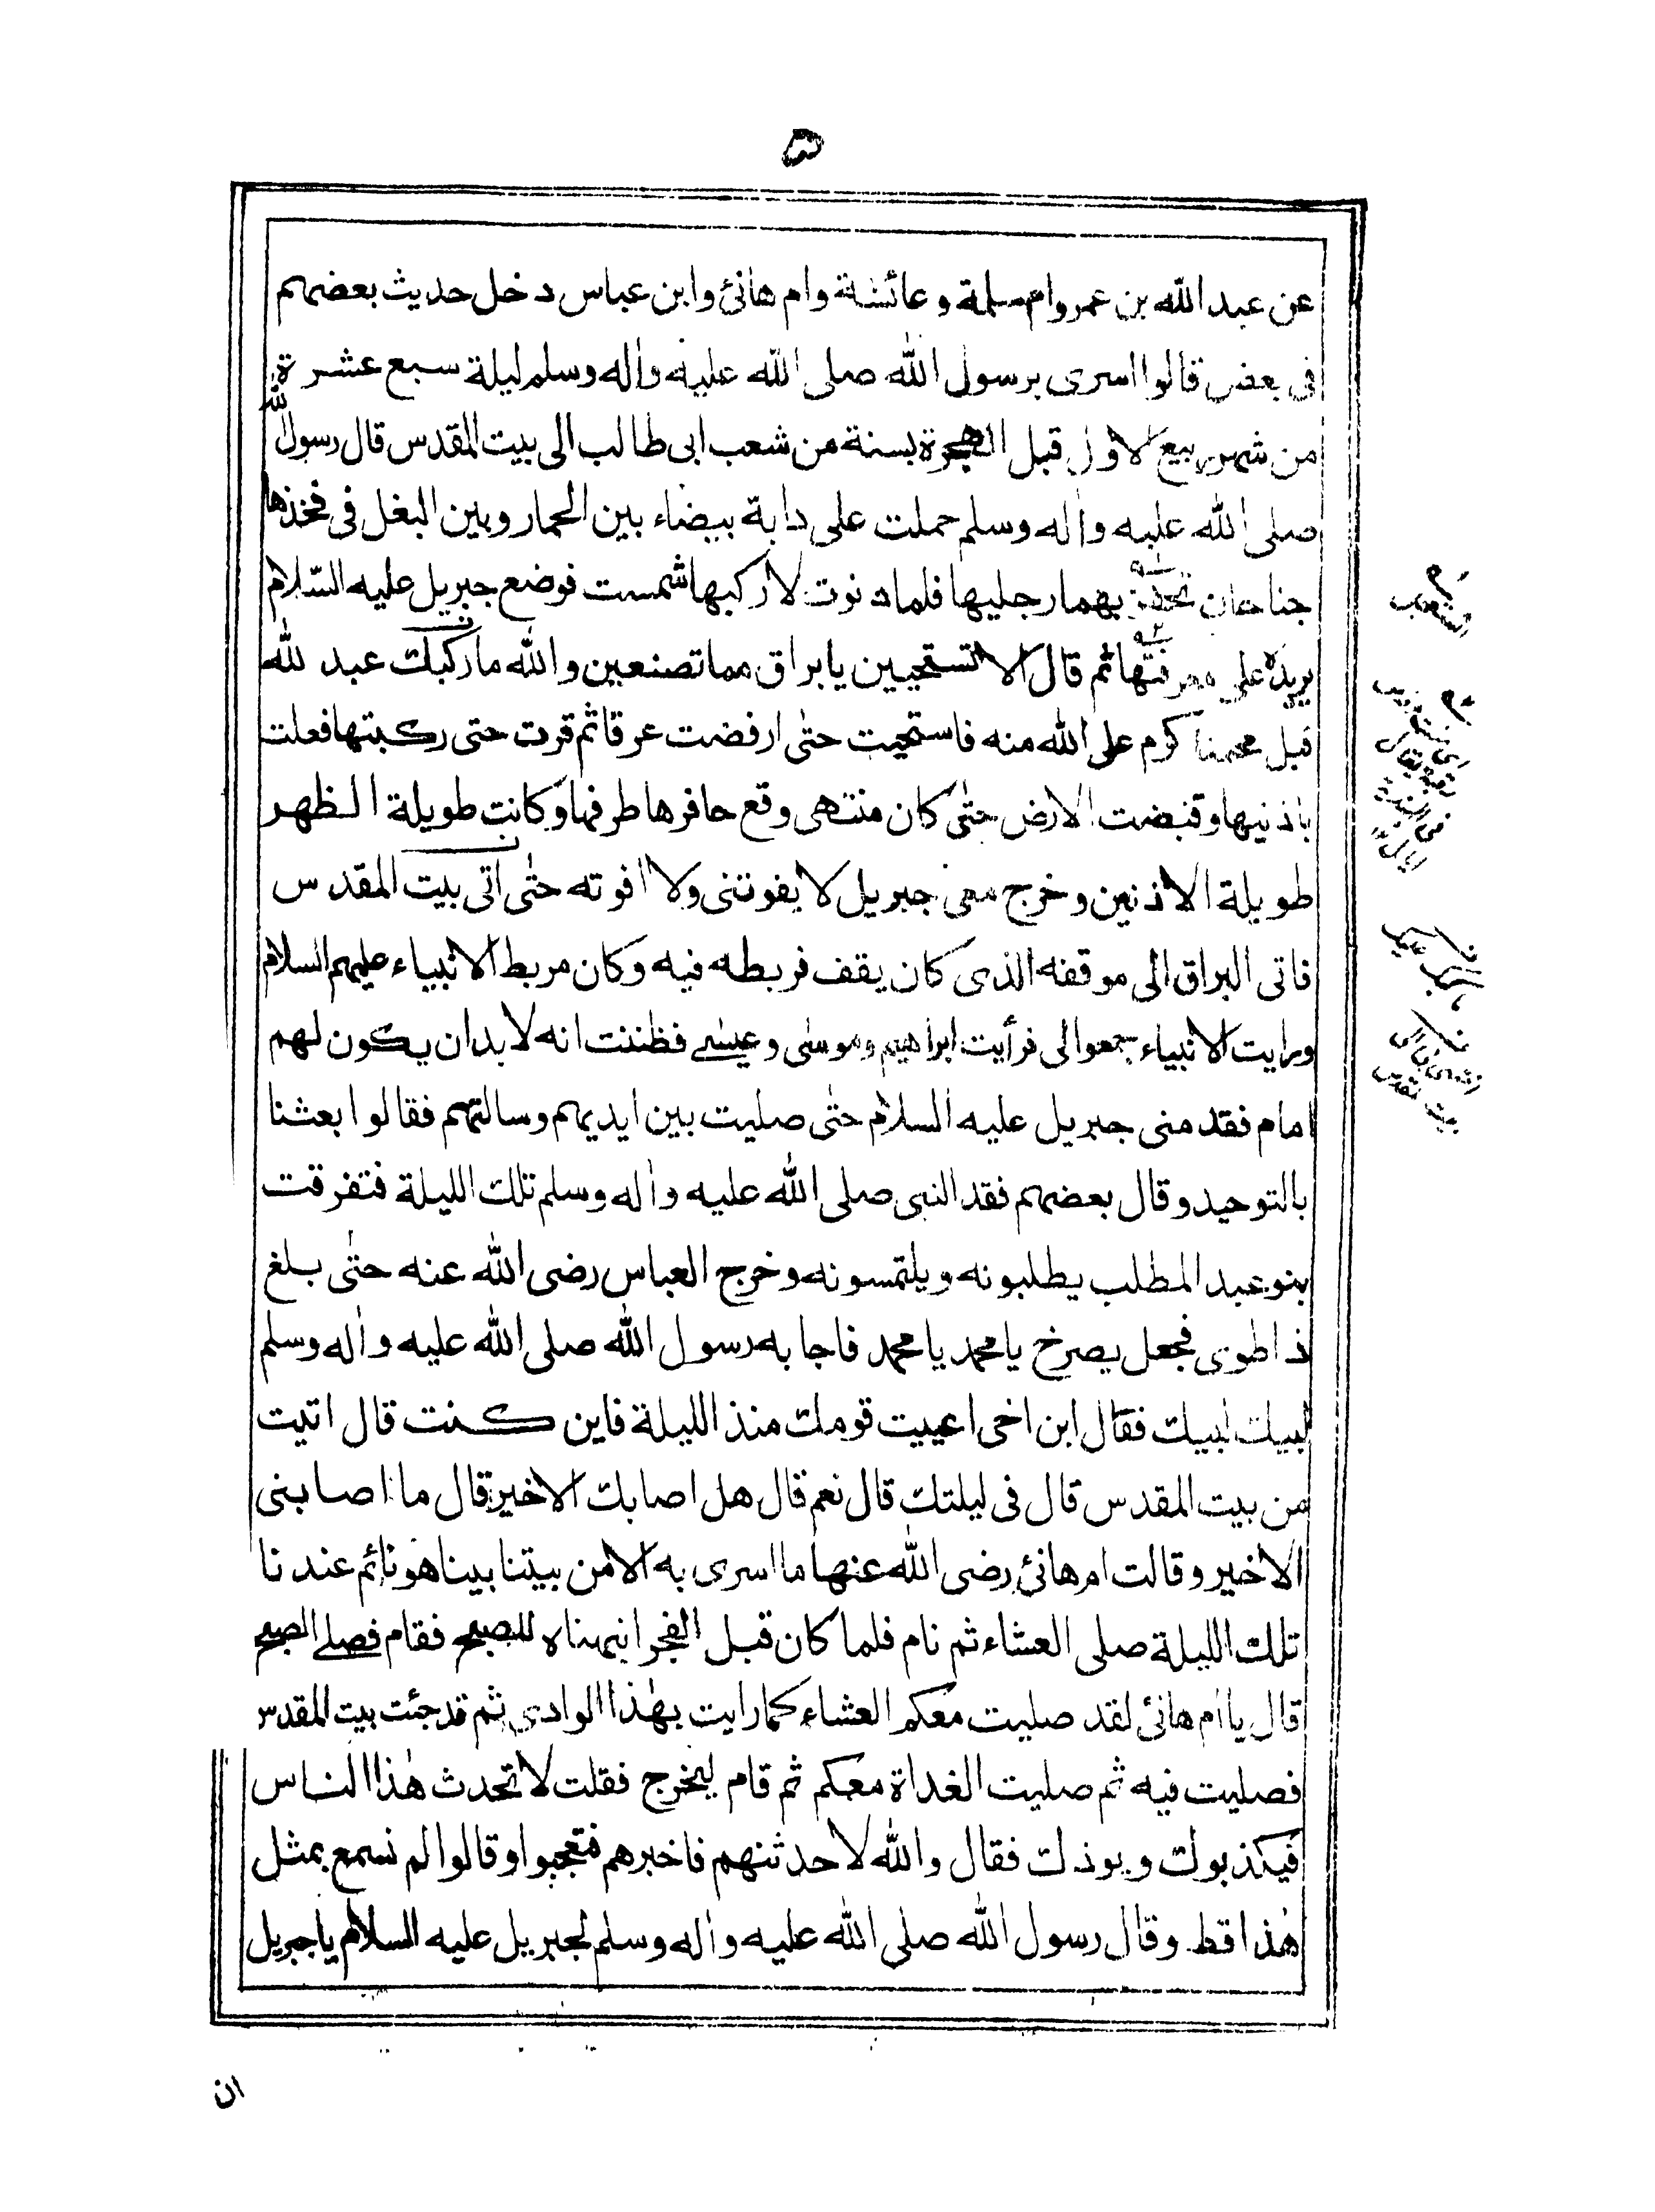 ۵
عن عبد الله بن عمر وام سلمة وعائشة وام هانئ وابن عباس دخل حديث بعضهم
فى بعض قالوا اسرى برسول الله صلى الله عليه واٰله وسلم ليلة سبع عشرة
من شهر ربيع الاول قبل الهجرة بسنة من شعب ابى طالب الى بيت المقدس قال رسول الله
صلى الله عليه واٰله وسلم حملت على دابة بيضاء بين الحمار وبين البغل فى فخذها
جناحان تحفز بهما رجليها فلما دنوت لاركبها شمست فوضع جبريل عليه السّلام
يده على معرفتها ثم قال الا تستحيين يا براق مما تصنعين والله ما ركبك عبد لله
قبل محمد اكرم على الله منه فاستحيت حتى ارفضت عرقا ثم قرت حتى ركبتها فعلت
باذنيها وقبضت الارض حتى كان منتهى وقع حافرها طرفها وكانت طويلة الظهر
طويلة الاذنين وخرج معى جبريل لا يفوتنى ولا افوته حتى اتى بيت المقدس
فاتى البراق الى موقفه الذى كان يقف فربطه فيه وكان مربط الانبياء عليهم السلام
ورايت الانبياء جمعوا لى فرأيت ابراهيم وموسى وعيسى فظننت انه لا بد ان يكون لهم
امام فقدمنى جبريل عليه السلام حتى صليت بين ايديهم وسالتهم فقالوا بعثنا
بالتوحيد وقال بعضهم فقد النبى صلى الله عليه واٰله وسلم تلك الليلة فتفرقت
بنو عبد المطلب يطلبونه ويلتمسونه وخرج العباس رضى الله عنه حتى بلغ
ذا طوى فجعل يصرخ يا محمد يا محمد فاجابه رسول الله صلى الله عليه واٰله وسلم
لبيك لبيك فقال ابن اخى اعييت قومك منذ الليلة فاين كنت قال اتيت
من بيت المقدس قال فى ليلتك قال نعم قال هل اصابك الا خير قال ما اصابنى
الا خير وقالت ام هانئ رضى الله عنها ما اسرى به الا من بيتنا بينا هو نائم عندنا
تلك الليلة صلى العشاء ثم نام فلما كان قبل الفجر انبهناه للصبح فقام فصلى الصبح
قال يا ام هانئ لقد صليت معكم العشاء كما رايت بهٰذا الوادى ثم قد جئت بيت المقدس
فصليت فيه ثم صليت الغداة معكم ثم قام ليخرج فقلت لا تحدث هٰذا الناس
فيكذبوك ويوذك فقال والله لاحدثنهم فاخبرهم فتعجبوا وقالوا لم نسمع بمثل
هٰذا قط وقال رسول الله صلى الله عليه واٰله وسلم لجبريل عليه السلام يا جبريل
ان